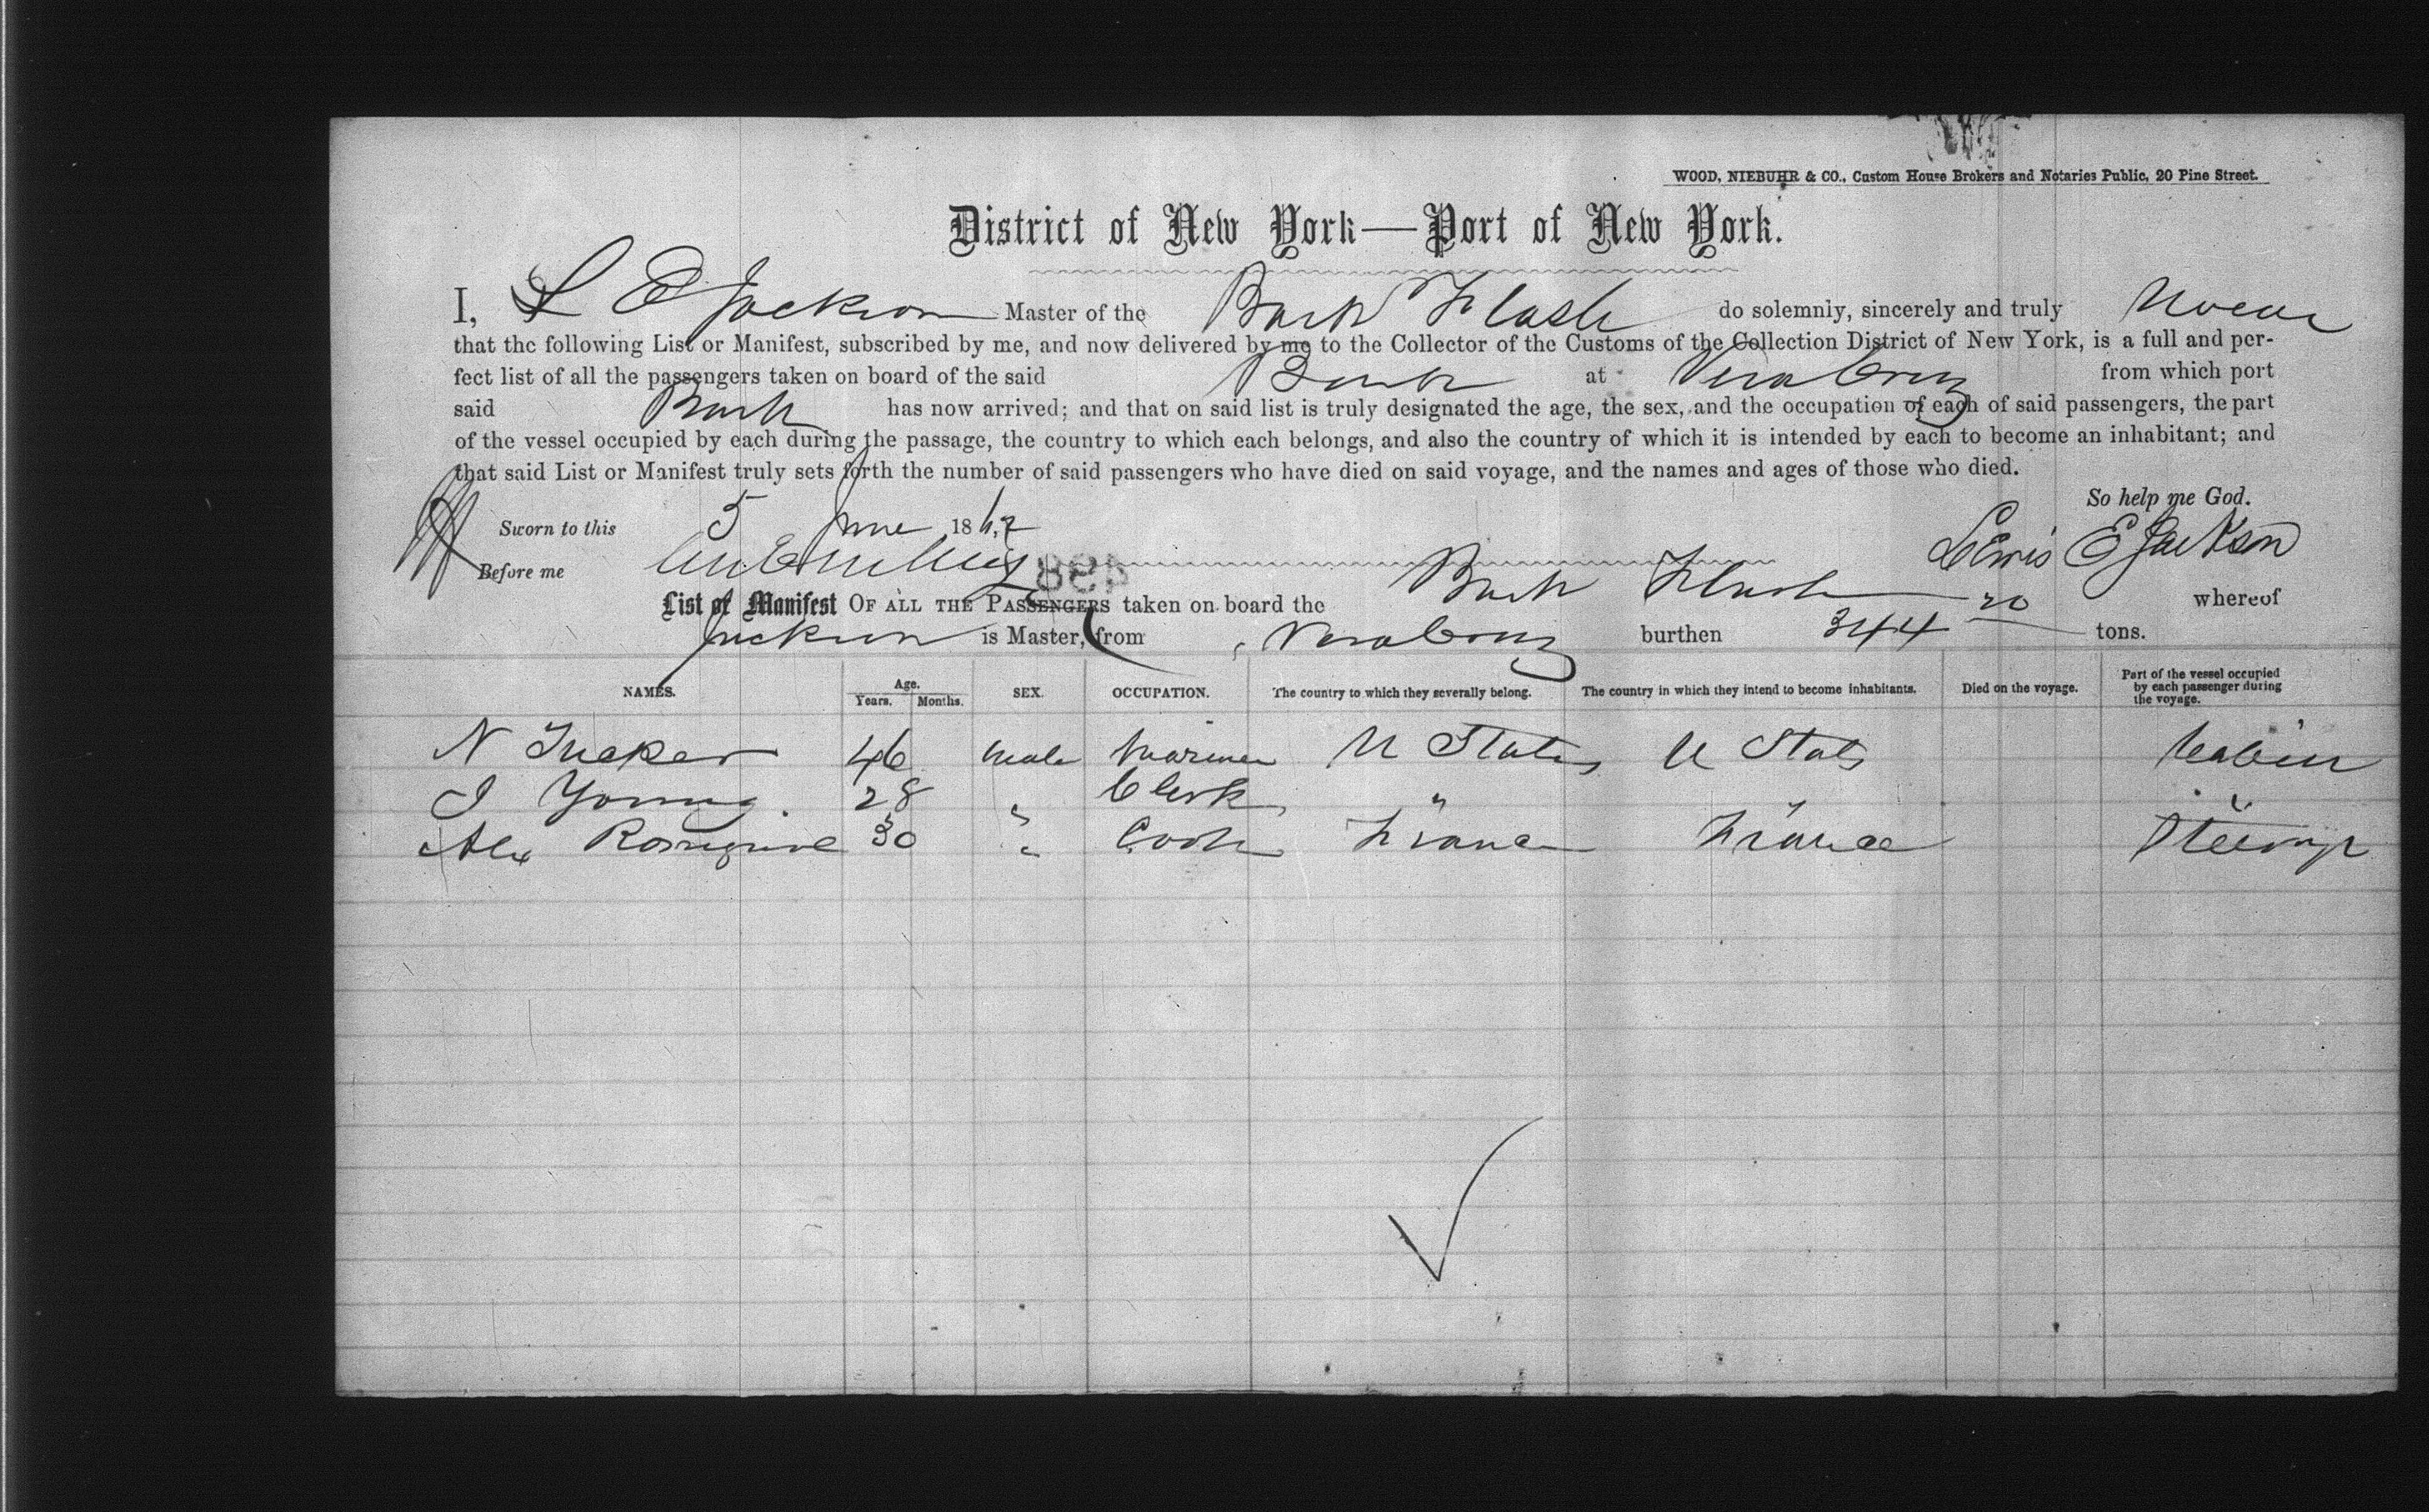 WOOD, NIEBUHR & CO., Custom House Brokers and Notaries Public, 20 Pine Street.
District of New York—Port of New York.
I, L E Jackson Master of the Bark Flash do solemnly, sincerely and truly swear
that the following List or Manifest, subscribed by me, and now delivered by me to the Collector of the Customs of the Collection District of New York, is a full and per-
fect list of all the passengers taken on board of the said Bark at Vera Cruz from which port
said Bark has now arrived; and that on said list is truly designated the age, the sex, and the occupation of each of said passengers, the part
of the vessel occupied by each during the passage, the country to which each belongs, and also the country of which it is intended by each to become an inhabitant; and
that said List or Manifest truly sets forth the number of said passengers who have died on said voyage, and the names and ages of those who died.
So help me God.
Sworn to this 5 June 186
Lewis E Jackson
Before me
498
List or Manifest OF ALL THE PASSENGERS taken on board the Bark Flash whereof
Jackson is Master, from Vera Cruz burthen 344 20 tons.
NAMES. Age. Years. Months. SEX. OCCUPATION. The country to which they severally belong. The country in which they intend to become inhabitants. Died on the voyage. Part of the vessel occupied by each passenger during the voyage.
N Tucker 46 male Mariner U States U Stats Cabin
J Young 28 " Clerk " "
Alex 30 " Cook France France Steerage